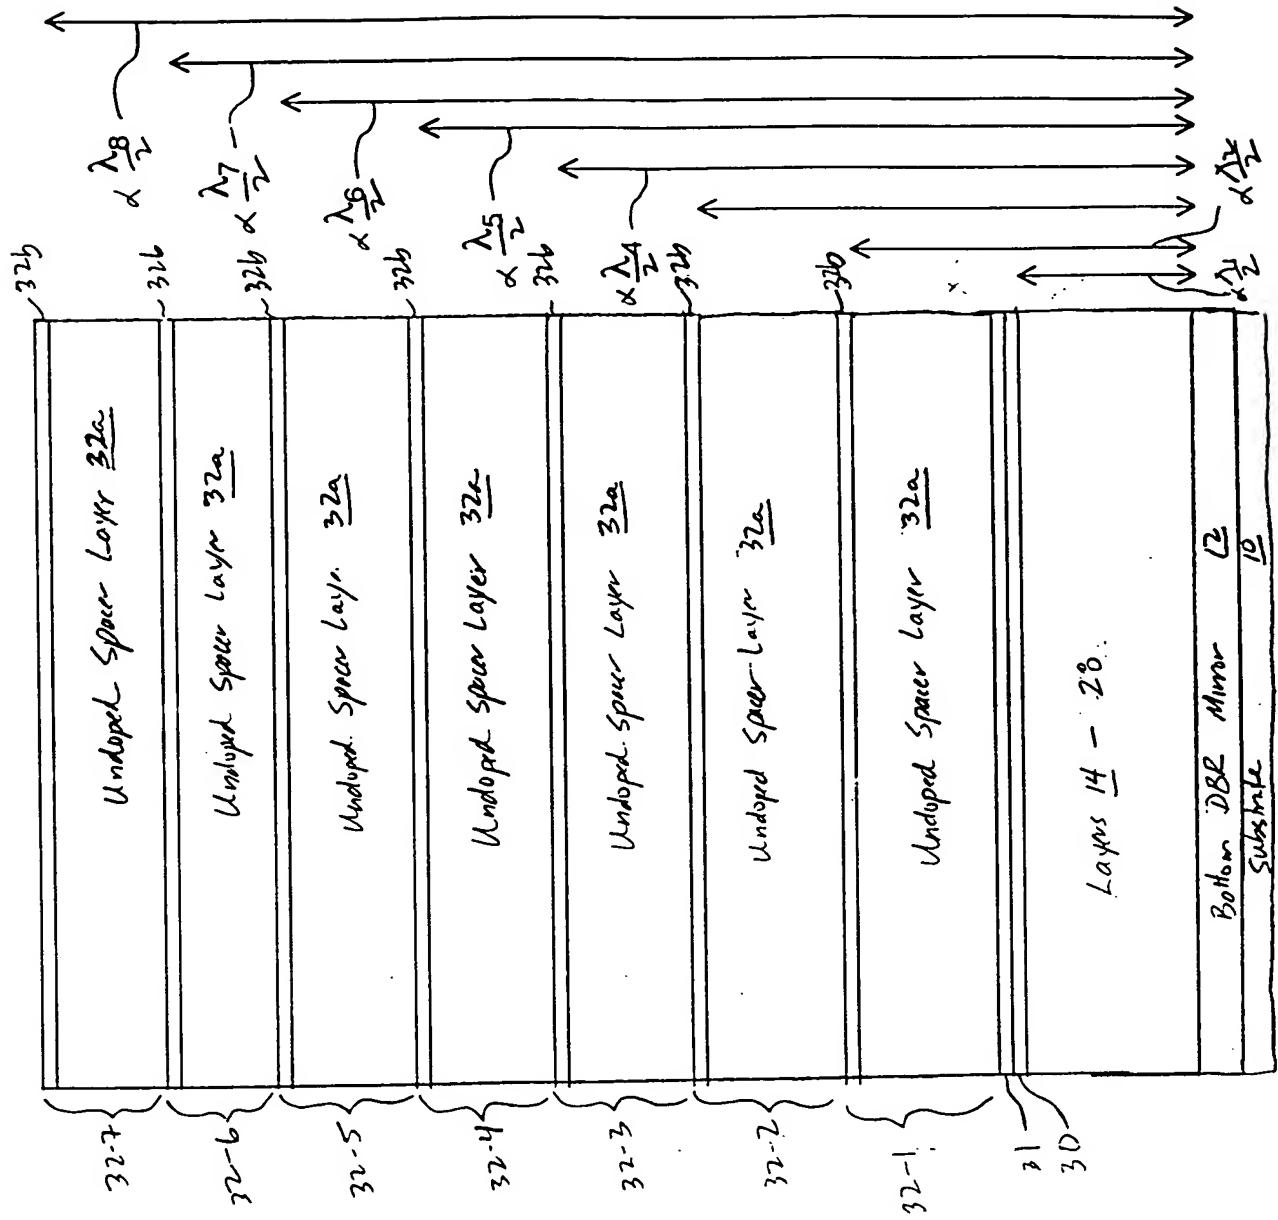 α λ8/2
α λ7/2
α λ6/2
α λ5/2
α λ4/2
α λ2/2
α λ1/2
32b
32b
32b
32b
32b
32b
32b
Undoped Spacer Layer 32a
Undoped Spacer Layer 32a
Undoped Spacer Layer 32a
Undoped Spacer Layer 32a
Undoped Spacer Layer 32a
Undoped Spacer Layer 32a
Undoped Spacer Layer 32a
Layers 14 - 28
Bottom DBR Mirror 12
Substrate 10
32-7
32-6
32-5
32-4
32-3
32-2
32-1
31
30